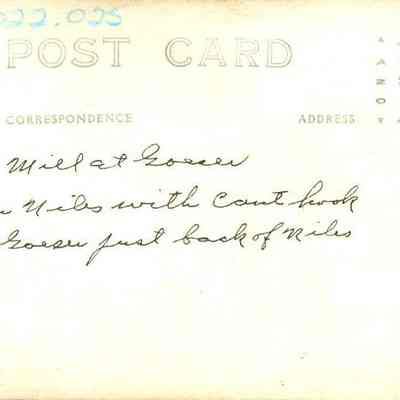 022.025
POST CARD
CORRESPONDENCE ADDRESS
Mill at Goeser
Niles with Cant hook
Goeser just back of Niles